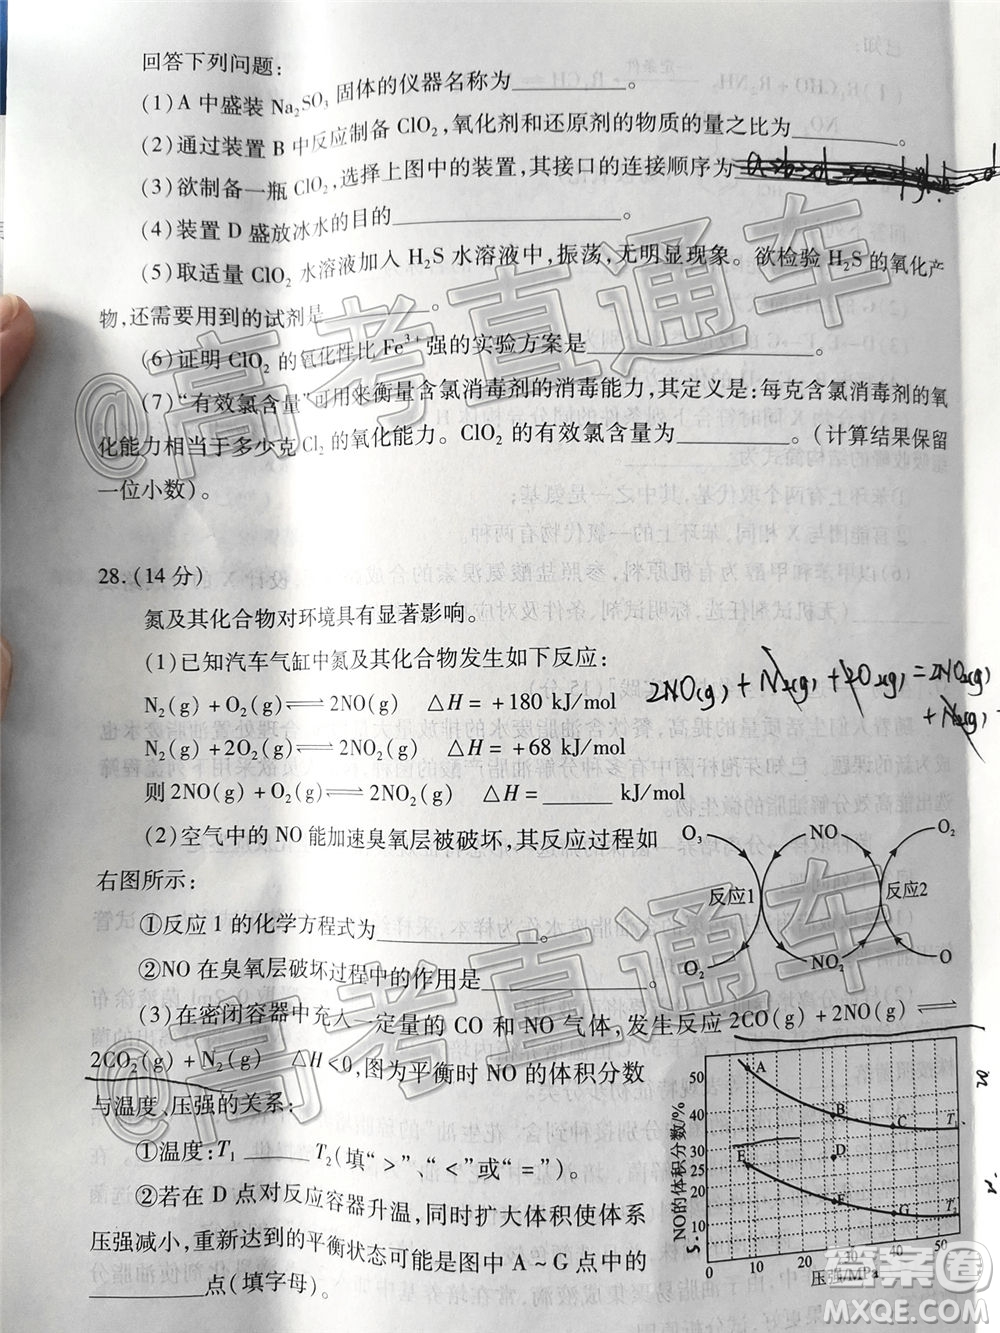 回答下列问题:
(1)A 中盛装 Na₂SO₃ 固体的仪器名称为________。
(2)通过装置 B 中反应制备 ClO₂,氧化剂和还原剂的物质的量之比为________。
(3)欲制备一瓶 ClO₂,选择上图中的装置,其接口的连接顺序为
(4)装置 D 盛放冰水的目的________。
(5)取适量 ClO₂ 水溶液加入 H₂S 水溶液中,振荡,无明显现象。欲检验 H₂S 的氧化产
物,还需要用到的试剂是________。
(6)证明 ClO₂ 的氧化性比 Fe³⁺ 强的实验方案是________。
(7)“有效氯含量”可用来衡量含氯消毒剂的消毒能力,其定义是:每克含氯消毒剂的氧
化能力相当于多少克 Cl₂ 的氧化能力。ClO₂ 的有效氯含量为________。(计算结果保留
一位小数)。
28.(14 分)
氮及其化合物对环境具有显著影响。
(1)已知汽车气缸中氮及其化合物发生如下反应:
N₂(g)+O₂(g)⇌2NO(g) ΔH=+180 kJ/mol
N₂(g)+2O₂(g)⇌2NO₂(g) ΔH=+68 kJ/mol
则 2NO(g)+O₂(g)⇌2NO₂(g) ΔH=________ kJ/mol
2NO(g)+N₂(g)+2O₂(g)=2NO₂(g)
+N₂(g)
(2)空气中的 NO 能加速臭氧层被破坏,其反应过程如
右图所示:
O₃ NO O₂
反应1 反应2
O₂ NO₂ O
①反应 1 的化学方程式为________。
②NO 在臭氧层破坏过程中的作用是________。
(3)在密闭容器中充入一定量的 CO 和 NO 气体,发生反应 2CO(g)+2NO(g)⇌
2CO₂(g)+N₂(g) ΔH<0,图为平衡时 NO 的体积分数
与温度、压强的关系:
①温度:T₁________T₂(填“>”、“<”或“=”)。
②若在 D 点对反应容器升温,同时扩大体积使体系
压强减小,重新达到的平衡状态可能是图中 A~G 点中的
________点(填字母)。
NO的体积分数/%
50
40
30
25
20
15
10
5
0 10 20 30 40 50
压强/MPa
A B C T₁
D
E F G T₂
@高考直通车
@高考直通车
答案圈
MXQE.COM